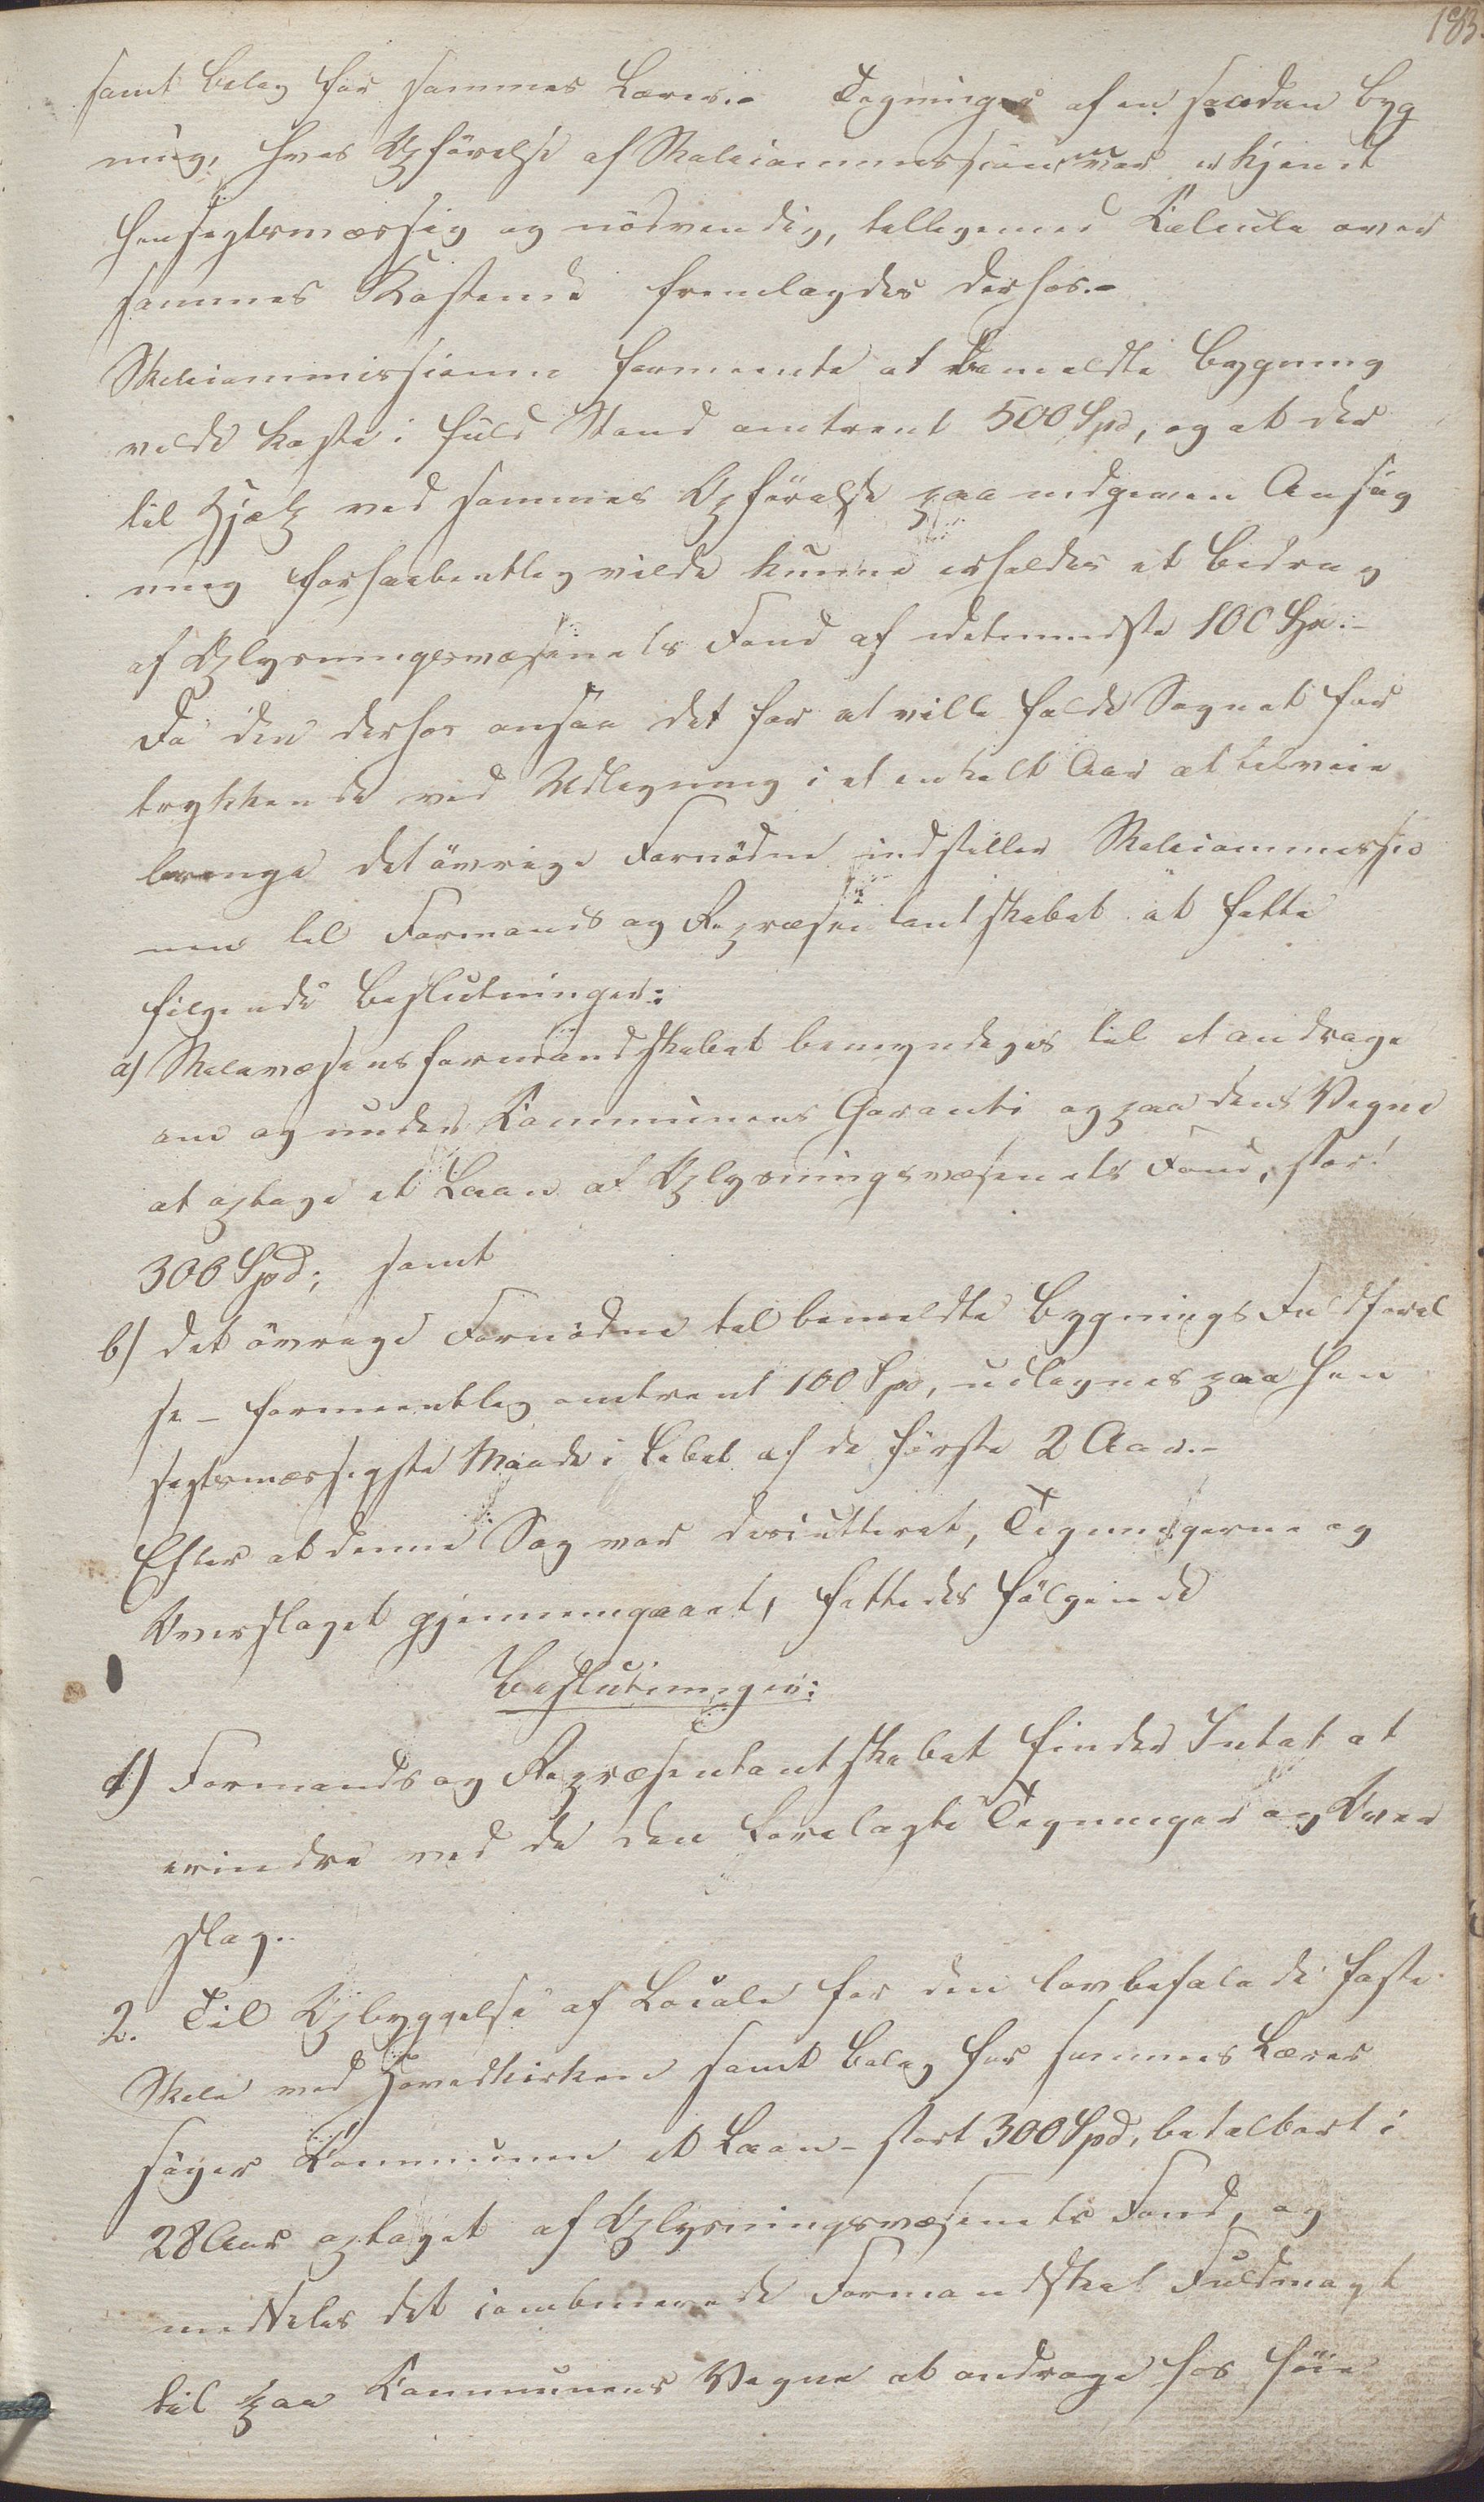 183.
samt Belæg for sammes Lærer.- Tegninger af en saadan Byg
ning, hves Opförelse af Skolecommissionen var erkjendt
hensigtsmæssig og nödvendig, tilligemed Calcule over
sammes Kostende fremlagdes derhos.-
Skolecommissionen formeente at bemeldte Bygning
vilde koste i fuld Stand omtrent 500 Spd, og at der
til Hjælp ved sammes Opförelse paa indgiven Ansög
ning forhaabentlig vilde kunne erholdes et Bidrag
af Oplysningsvæsenets Fond af idetmindste 100 Spd.-
Da den derhos ansaa det for at ville falde Sognet for
trykkende ved Udlegning i et enkelt Aar at tilveie
bringe det övrige Fornödne indstiller Skolecommissio
nen til Formands og Repræsentantskabet at fatte
fölgende Beslutninger:
a) Skolevæsensformandskabet bemyndiges til at andrage
om og under Communens Garanti og paa dens Vegne
at optage et Laan af Oplysningsvæsenets Fond, stor!
300 Spd; samt
b) det övrige Fornödne til bemeldte Bygnings Fuldförel
se - formeentlig omtrent 100 Spd, udlegnes paa hen
sigtsmæssigste Maade i Löbet af de förste 2 Aar.-
Efter at denne Sag var discutteret, Tegningerne og
Overslaget gjennemgaaet, fattedes fölgende
Beslutninger:
1) Formands og Repræsentantskabet finder Intet at
erindre ved de den forelagte Tegninger og Over
slag.
2. Til Opbyggelse af Locale for den lovbefalede faste
Skole ved Hovedkirken samt Belæg for sammes Lærer
söger Communen et Laan - stort 300 Spd, betalbart i
28 Aar optaget af Oplysningsvæsenets Fond, og
meddeles det combinerede Formandskab Fuldmagt
til paa Communens Vegne at andrage hos höie